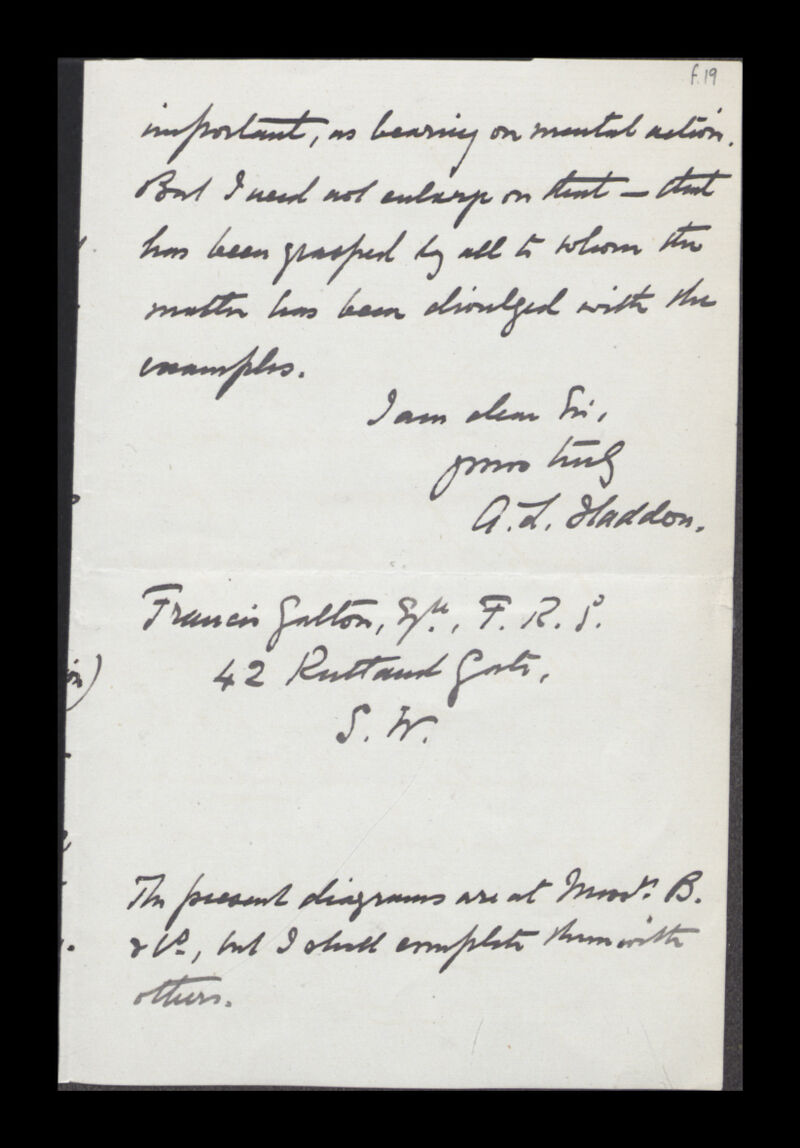 f.19
important, as bearing on mental action.
But I need not enlarge on that — that
has been grasped by all to whom the
matter has been divulged with the
examples.
I am dear Sir,
yours truly
A. L. Haddon.
Francis Galton, Esqre., F. R. S.
42 Rutland Gate,
S. W.
The present diagrams are at B.
& Co., but I shall complete them with
others.